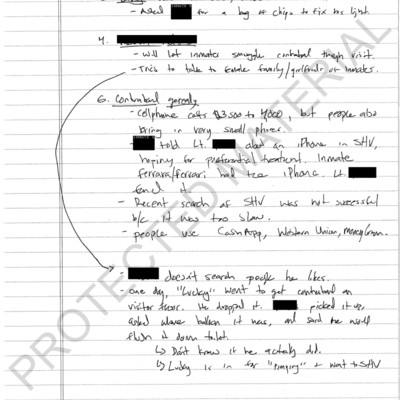 - Asked for a bag of chips to fix his light.
4.
- Will let inmates smuggle contraband through visit.
- Tries to talk to female family/girlfriends of inmates.
6. Contraband generally
- Cellphone costs $3,500 to 4000, but people also
bring in very small phones.
- told Lt. about an iPhone in SHV,
hoping for preferential treatment. Inmate
Ferrara/Ferrari had the iPhone. Lt.
found it.
- Recent search of SHV was not successful
b/c it was too slow.
- people use CashApp, Western Union, MoneyGram.
- doesn't search people he likes.
- one day, "Lucky" went to get contraband in
visitor room. He dropped it. picked it up,
asked whose balloon it was, and said he would
flush it down toilet.
↳ Don't know if he actually did.
↳ Lucky is in for "pimping" & went to SHV
PROTECTED MATERIAL